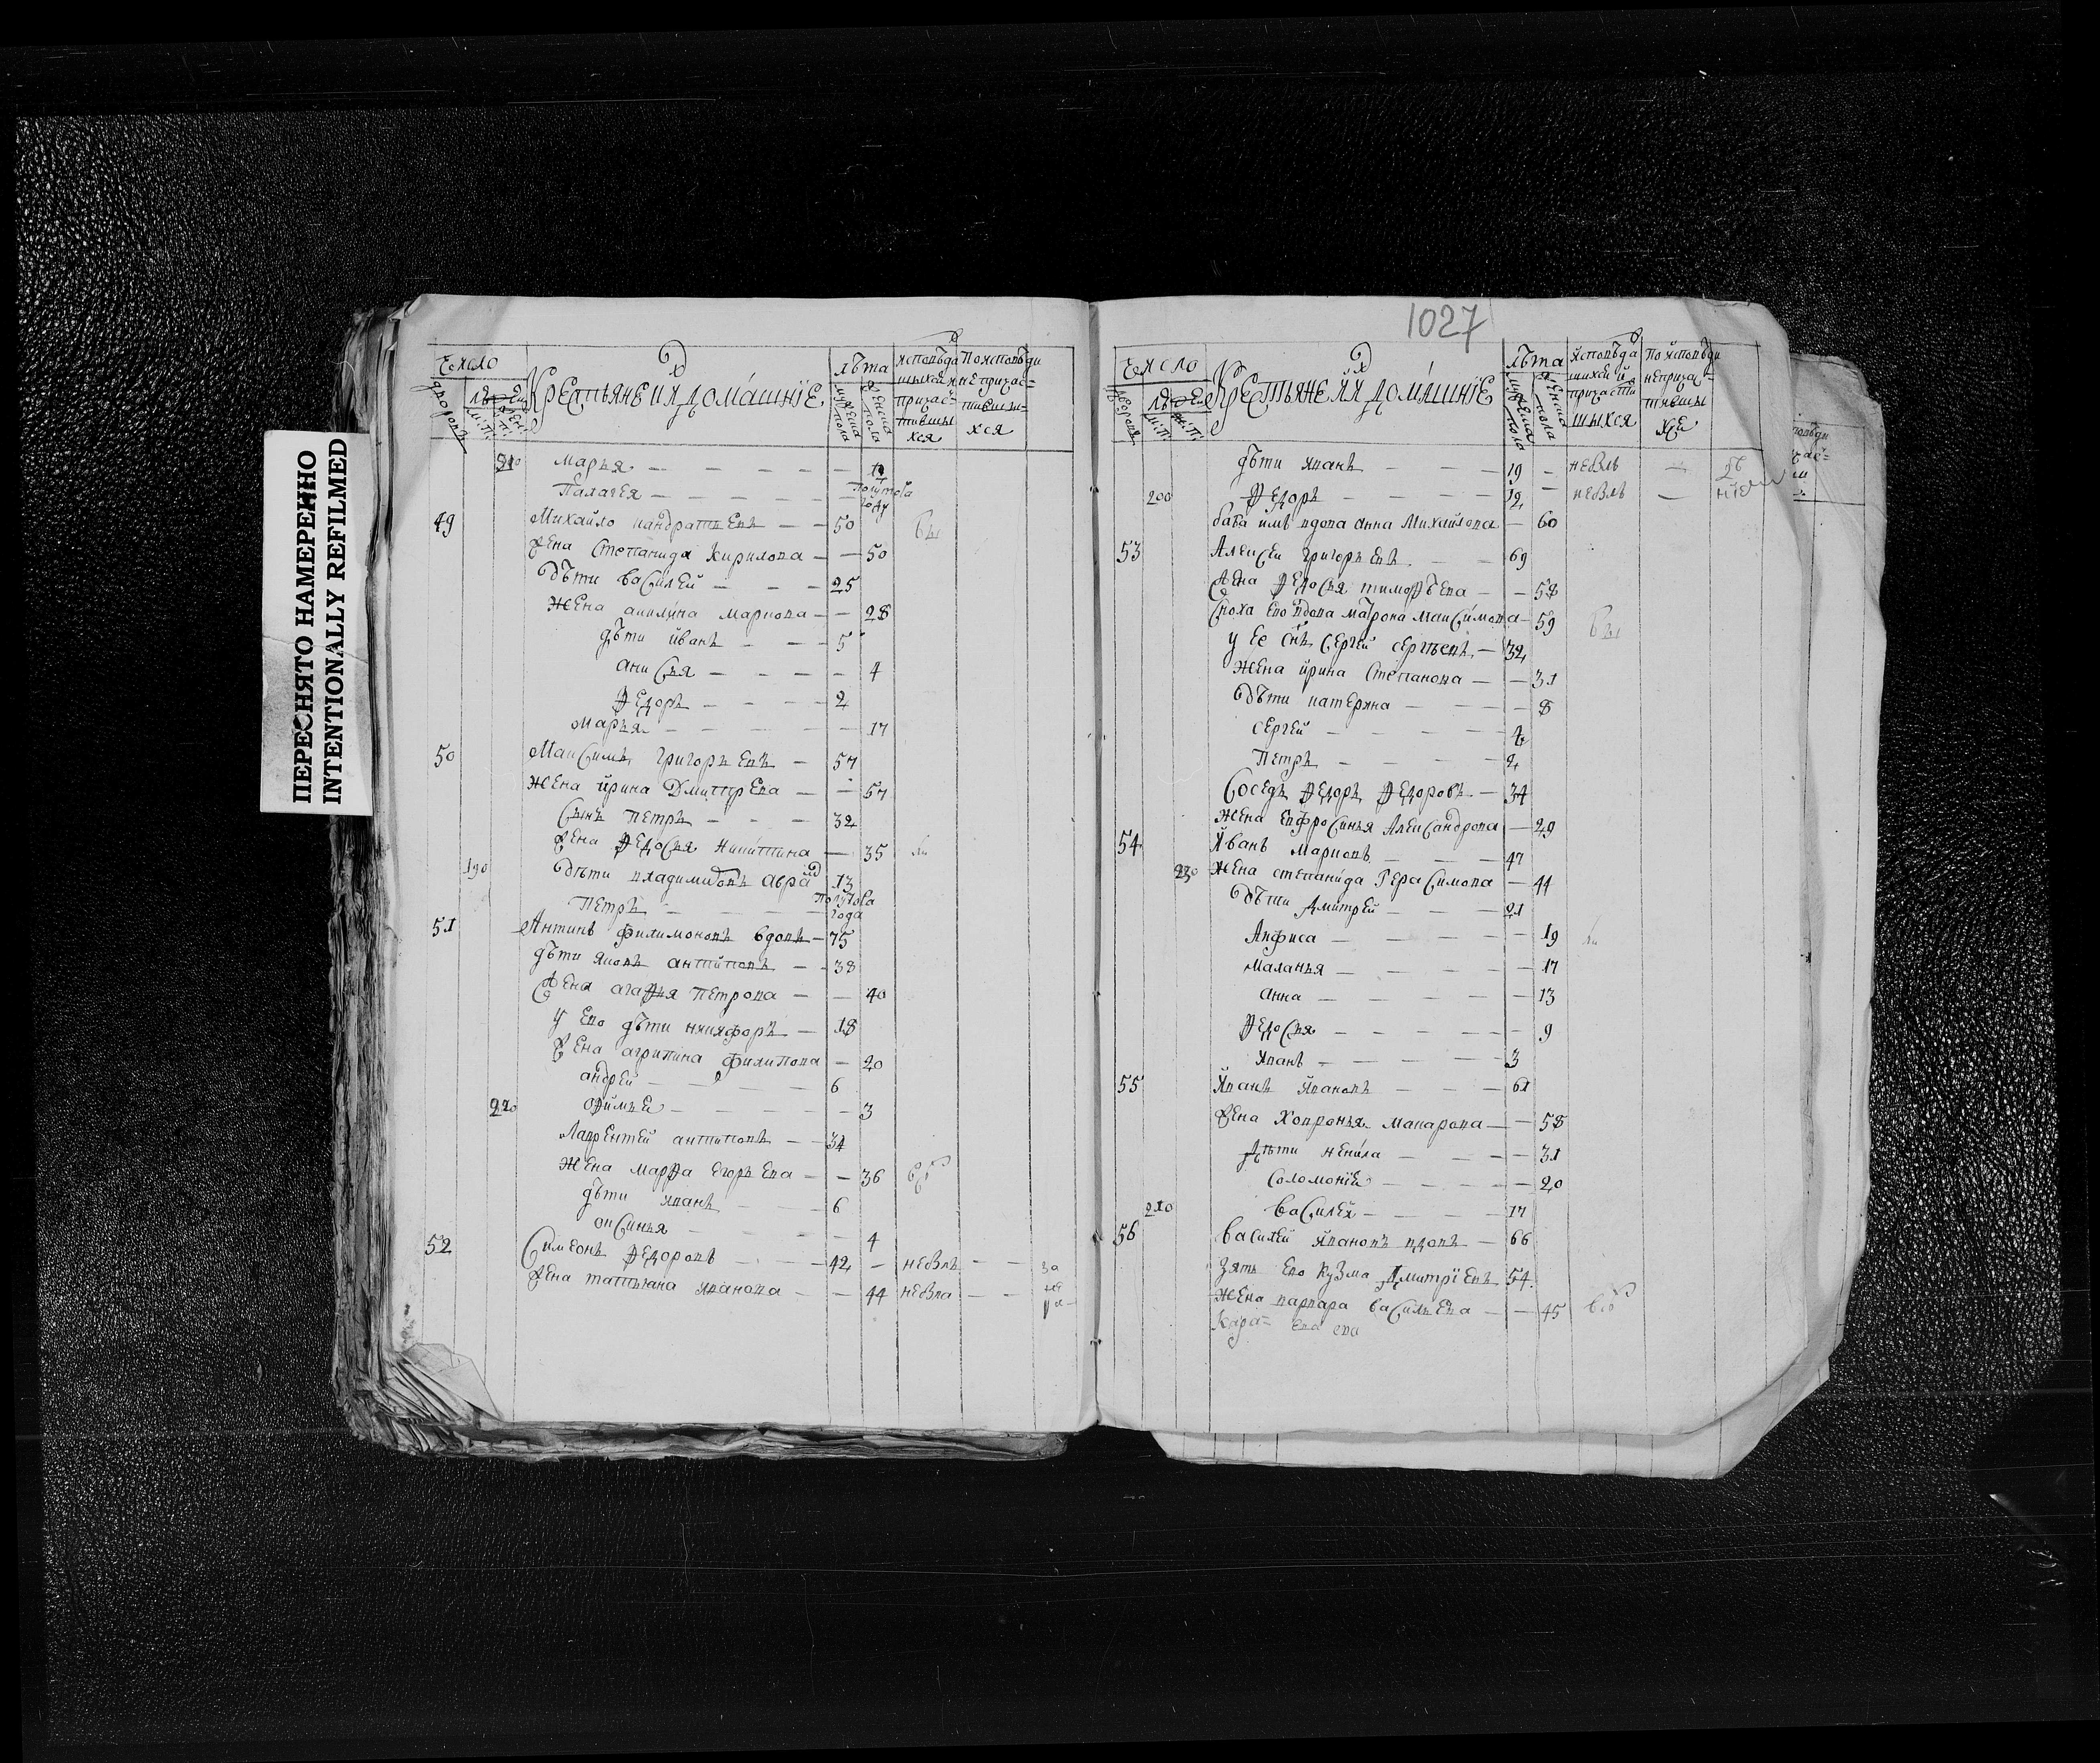 ПЕРЕСНЯТО НАМЕРЕННО
INTENTIONALLY REFILMED
Число
Крестьяне и их домашніе
лѣта
мужеска пола
женска пола
исповѣда
шихся и
причас=
тившы
хся
По исповѣди
не причас=
тившы=
хся
Марья — —
Палагея — — полутора году
49 Михайло кандратьевъ — 50
жена Степанида Кирилова — 50
дѣти василей — 25
жена акилина Маркова — 28
дѣти иванъ — 5
анисья — 4
Ѳедоръ — 2
марья — 17
50 Максимъ григорьевъ — 57
жена ирина Дмитрева — 57
сынъ петръ — 32
жена Ѳедосья никитина — 35
190 дѣти владими 13
петръ — полутора года
51 Антипъ филимоновъ вдовъ — 75
дѣти яковъ антиповъ — 38
жена агаѲья петрова — 40
у ево дѣти никифоръ — 18
жена агрипина филипова — 20
андрей — 6
220 — 3
Лаврентей антиповъ — 34
жена марѲа егорьева — 36
дѣти иванъ — 6
оксинья — 4
52 Симеонъ Ѳедоровъ — 42 —
жена татьяна иванова — 44
1027
Число
Крестьяне и их домашніе
лѣта
мужеска пола
женска пола
исповѣда
шихся и
причасти
шыхся
По исповѣди
неприча=
тившы
хся
дѣти иванъ — 19
200 Ѳедоръ — 12
баба имъ вдова анна Михайлова — 60
53 Алексей григорьевъ — 69
жена Ѳедосья тимоѲѣева — 58
сноха ево вдова матрона максимова — 59
у ее снъ сергей сергѣевъ — 32
жена ирина Степанова — 31
дѣти катерина — 8
сергей — 4
петръ — 2
Соседъ Ѳедоръ Ѳедоровъ — 34
жена евфросинья Александрова — 29
54 Иванъ марковъ — 47
230 жена степанида Герасимова — 44
дѣти дмитрей — 21
Анфиса — 19
маланья — 17
анна — 13
Ѳедосья — 9
иванъ — 3
55 Иванъ ивановъ — 61
жена Ховронья макарова — 58
дѣти ненила — 31
соломонія — 20
210 василей — 17
56 василей ивановъ вдовъ — 66
зять ево кузма дмитріевъ 54
жена варвара васильева — 45